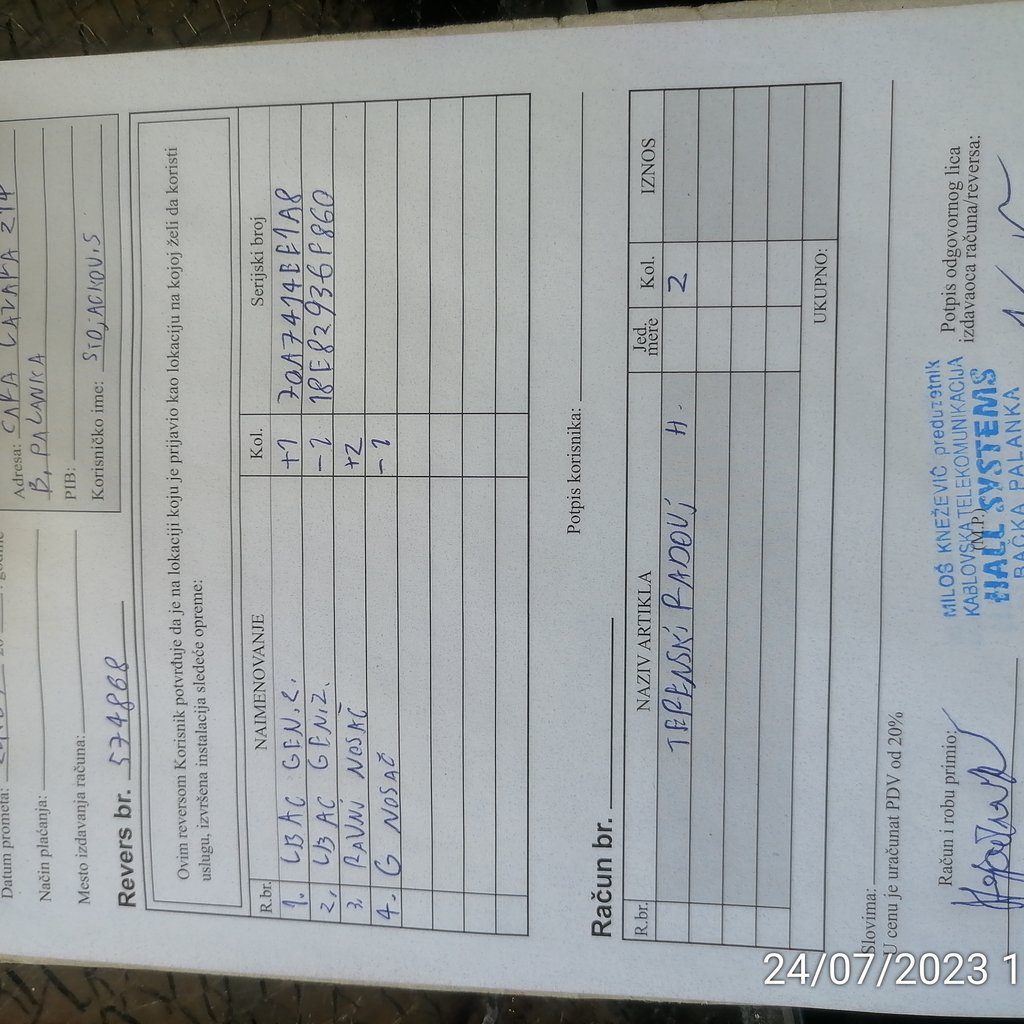 Adresa: CARA LAZARA 214
B. PALANKA
PIB:
Korisničko ime: STOJACKOV.S
Datum prometa:
Način plaćanja:
Mesto izdavanja računa:
Revers br. 574868
Ovim reversom Korisnik potvrđuje da je na lokaciji koju je prijavio kao lokaciju na kojoj želi da koristi
uslugu, izvršena instalacija sledeće opreme:
R.br. NAIMENOVANJE Kol. Serijski broj
1. LBAC GEN.2. +1 70A7414BE1A8
2. LBAC GEN.2. -1 18E82936F860
3. RAVNI NOSAČ +2
4. G NOSAČ -1
Potpis korisnika:
Račun br.
R.br. NAZIV ARTIKLA Jed. mere Kol. IZNOS
TERENSKI RADOVI H. 2
UKUPNO:
Slovima:
U cenu je uračunat PDV od 20%
Račun i robu primio:
(M.P.)
MILOŠ KNEŽEVIĆ preduzetnik
KABLOVSKA TELEKOMUNIKACIJA
HALL SYSTEMS
BAČKA PALANKA
Potpis odgovornog lica
izdavaoca računa/reversa:
24/07/2023 1